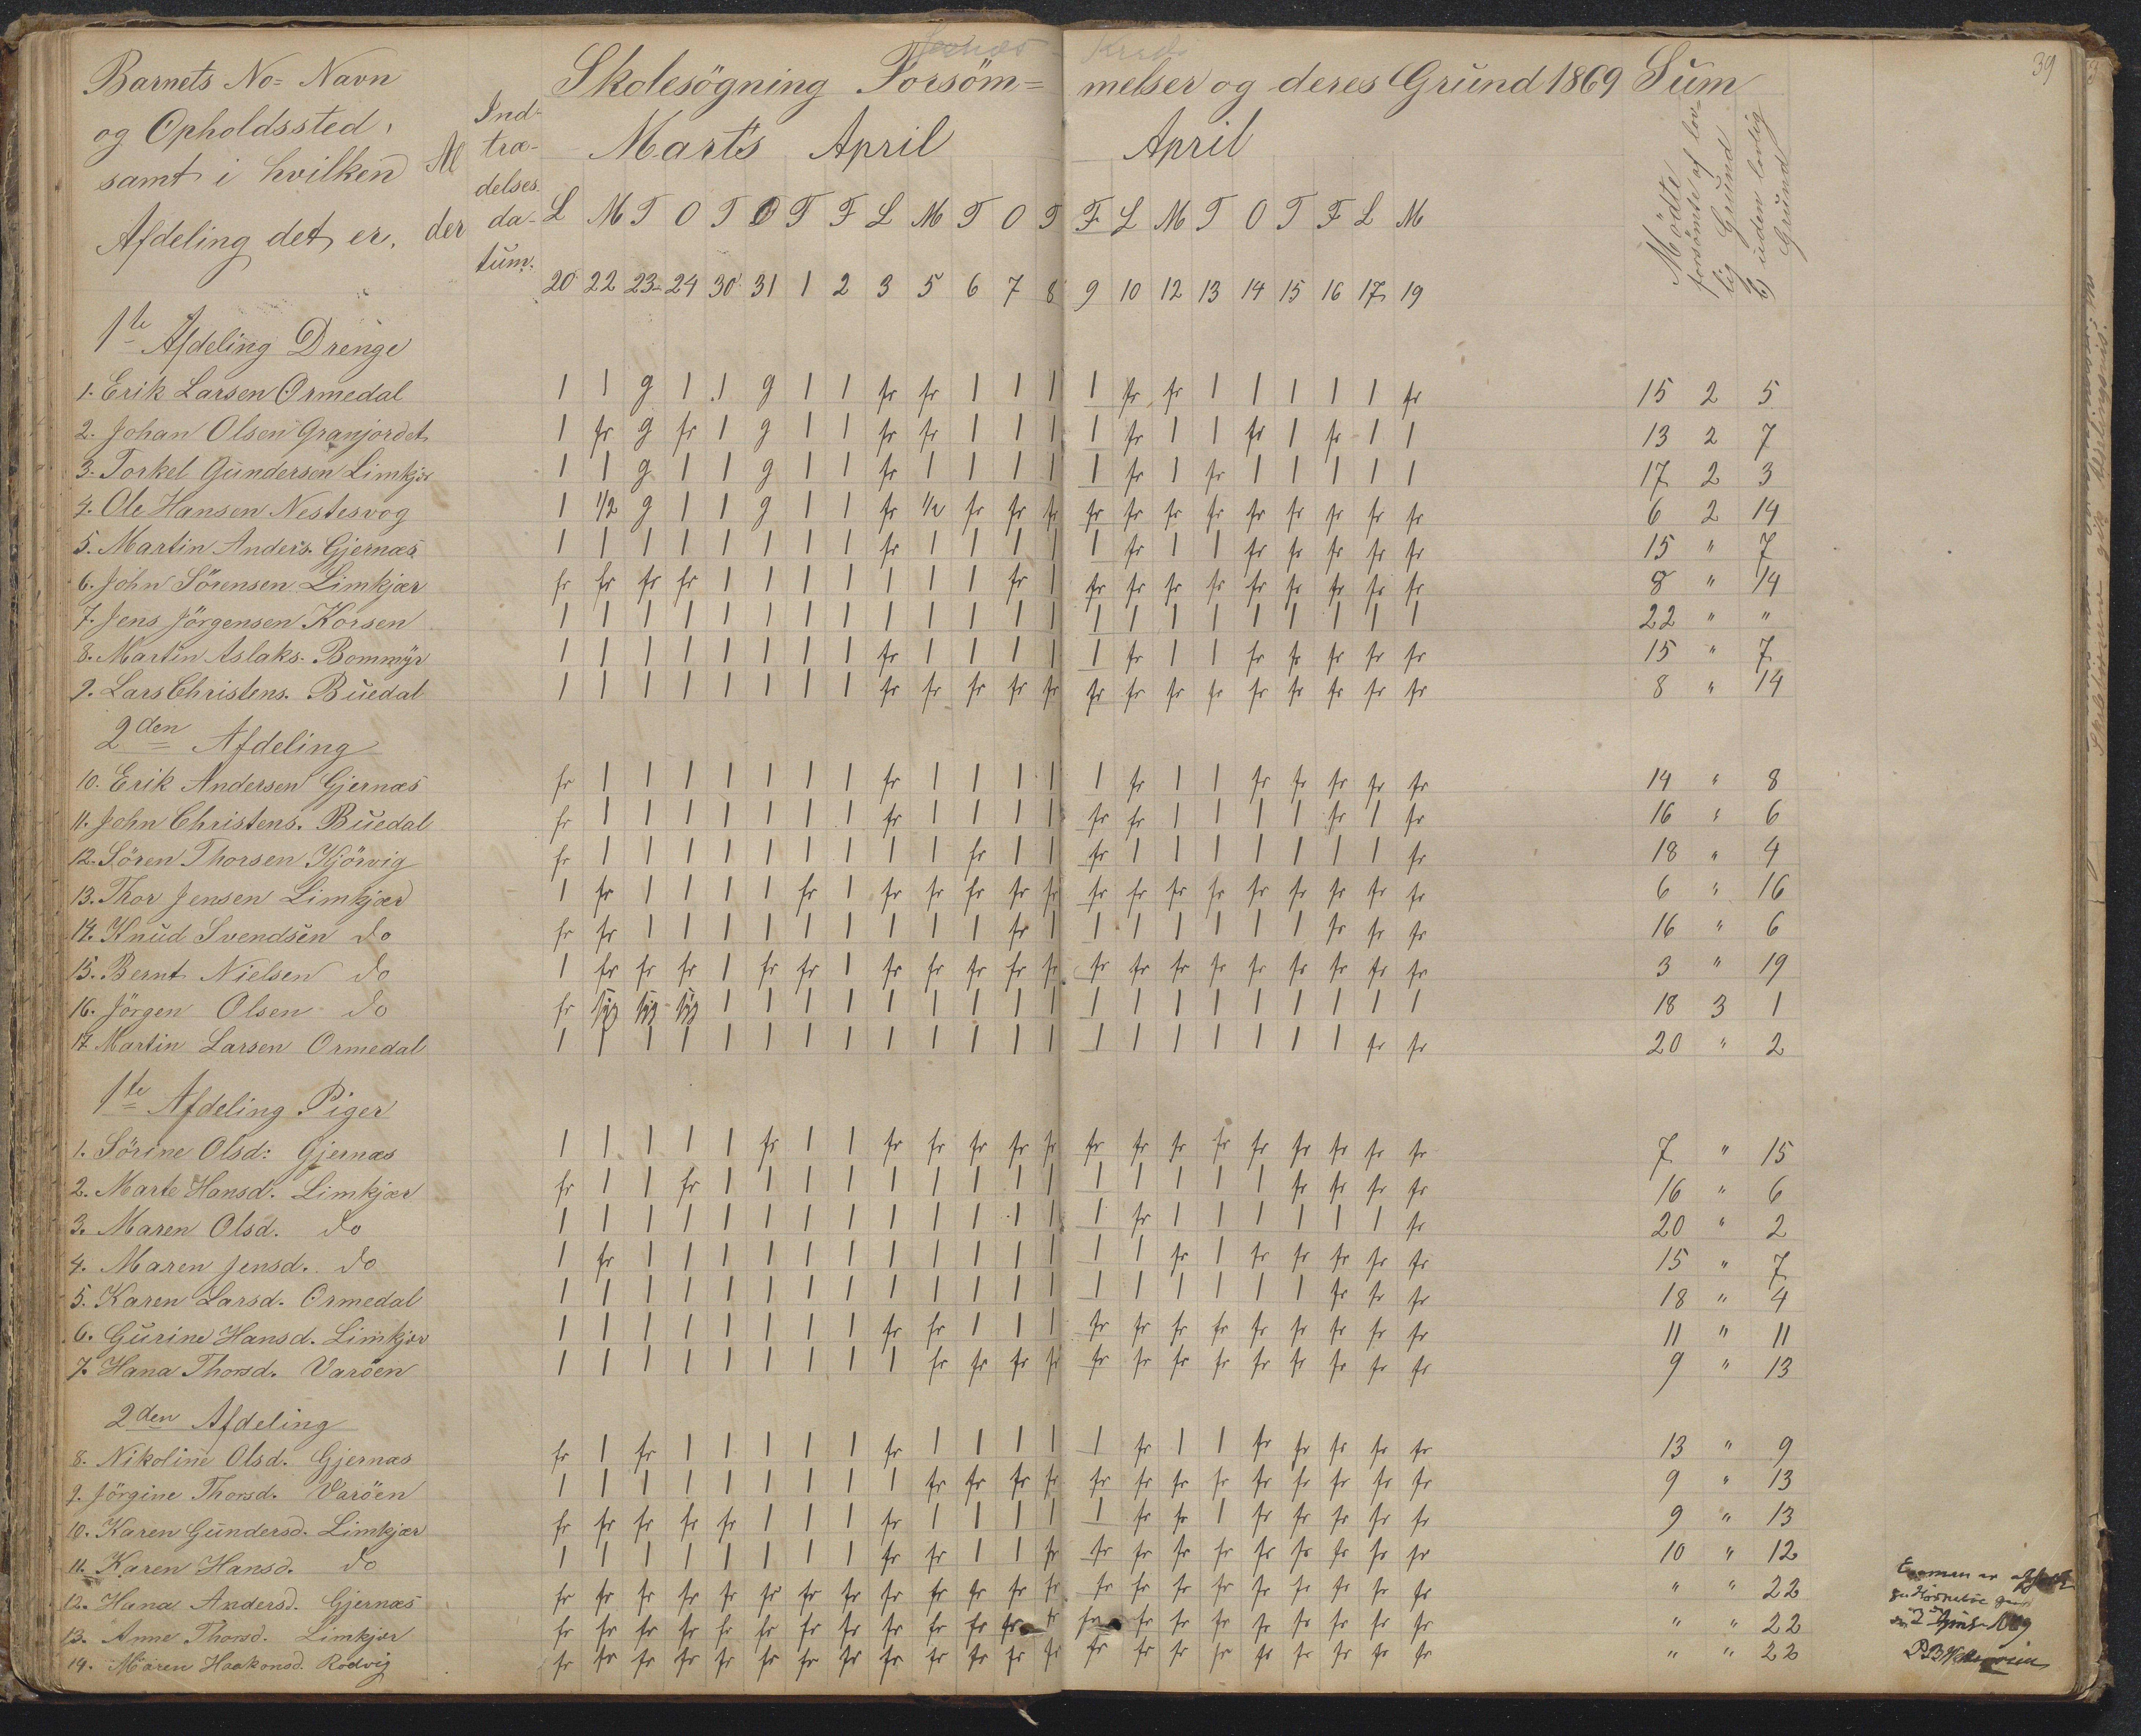 39
Barnets No= Navn
og Opholdssted,
samt i hvilken
Afdeling det er.
M
der
Ind=
træ-
delses.
da-
tum.
Skolesögning Forsöm= melser og deres Grund 1869 Sum
Marts April April
Mödte
forsömte af lov-
lig Grund
uden lovlig
Grund
L M T O T O T F L M T O T F L M T O T F L M
20 22 23 24 30 31 1 2 3 5 6 7 8 9 10 12 13 14 15 16 17 19
1te Afdeling Drenge
1. Erik Larsen Ormedal 1 1 g 1 1 g 1 1 fr fr 1 1 1 1 fr fr 1 1 1 1 1 fr 15 2 5
2. Johan Olsen Granjordet 1 fr g fr 1 g 1 1 fr fr 1 1 1 1 fr 1 1 fr 1 fr 1 1 13 2 7
3. Torkel Gundersen Limkjær 1 1 g 1 1 g 1 1 fr 1 1 1 1 1 fr 1 fr 1 1 1 1 1 17 2 3
4. Ole Hansen Nestesvog 1 1/2 g 1 1 g 1 1 fr 1/2 fr fr fr fr fr fr fr fr fr fr fr fr 6 2 14
5. Martin Anders. Gjernæs 1 1 1 1 1 1 1 1 fr 1 1 1 1 1 fr 1 1 fr fr fr fr fr 15 " 7
6. John Sörensen Limkjær fr fr fr fr 1 1 1 1 1 1 1 fr 1 fr fr fr fr fr fr fr fr fr 8 " 14
7. Jens Jörgensen Korsen 1 1 1 1 1 1 1 1 1 1 1 1 1 1 1 1 1 1 1 1 1 1 22 " "
8. Martin Aslaks. Bommyr 1 1 1 1 1 1 1 1 fr 1 1 1 1 1 fr 1 1 fr fr fr fr fr 15 " 7
9. Lars Christens. Buedal 1 1 1 1 1 1 1 1 fr fr fr fr fr fr fr fr fr fr fr fr fr fr 8 " 14
2den Afdeling
10. Erik Andersen Gjernæs fr 1 1 1 1 1 1 1 fr 1 1 1 1 1 fr 1 1 fr fr fr fr fr 14 " 8
11. John Christens. Buedal fr 1 1 1 1 1 1 1 fr 1 1 1 1 fr fr 1 1 1 1 fr 1 fr 16 " 6
12. Sören Thorsen Kjörvig fr 1 1 1 1 1 1 1 1 1 fr 1 1 fr 1 1 1 1 1 1 1 fr 18 " 4
13. Thor Jensen Limkjær 1 fr 1 1 1 1 fr 1 fr fr fr fr fr fr fr fr fr fr fr fr fr fr 6 " 16
14. Knud Svendsen do fr fr 1 1 1 1 1 1 1 1 1 fr 1 1 1 1 1 1 1 fr fr fr 16 " 6
15. Bernt Nielsen do 1 fr fr fr 1 fr fr 1 fr fr fr fr fr fr fr fr fr fr fr fr fr fr 3 " 19
16. Jörgen Olsen do fr syg syg syg 1 1 1 1 1 1 1 1 1 1 1 1 1 1 1 1 1 1 18 3 1
17. Martin Larsen Ormedal 1 1 1 1 1 1 1 1 1 1 1 1 1 1 1 1 1 1 1 1 fr fr 20 " 2
1te Afdeling Piger
1. Sörine Olsd: Gjernæs 1 1 1 1 1 fr 1 1 fr fr fr fr fr fr fr fr fr fr fr fr fr fr 7 " 15
2. Marte Hansd. Limkjær fr 1 1 fr 1 1 1 1 1 1 1 1 1 1 1 1 1 1 fr fr fr fr 16 " 6
3. Maren Olsd. do 1 1 1 1 1 1 1 1 1 1 1 1 1 1 fr 1 1 1 1 1 1 fr 20 " 2
4. Maren Jensd. do 1 fr 1 1 1 1 1 1 1 1 1 1 1 1 1 fr 1 fr fr fr fr fr 15 " 7
5. Karen Larsd. Ormedal 1 1 1 1 1 1 1 1 1 1 1 1 1 1 1 1 1 1 1 fr fr fr 18 " 4
6. Gurine Hansd. Limkjær 1 1 1 1 1 1 1 1 fr fr 1 1 1 fr fr fr fr fr fr fr fr fr 11 " 11
7. Hana Thorsd. Varöen 1 1 1 1 1 1 1 1 1 fr fr fr fr fr fr fr fr fr fr fr fr fr 9 " 13
2den Afdeling
8. Nikoline Olsd. Gjernæs fr 1 fr 1 1 1 1 1 fr 1 1 1 1 1 fr 1 1 fr fr fr fr fr 13 " 9
9. Jörgine Thorsd. Varöen 1 1 1 1 1 1 1 1 1 fr fr fr fr fr fr fr fr fr fr fr fr fr 9 " 13
10. Karen Gundersd. Limkjær fr fr fr fr fr 1 1 1 fr 1 1 1 1 1 fr fr 1 fr fr fr fr fr 9 " 13
11. Karen Hansd. do 1 1 1 1 1 1 1 1 fr fr 1 1 fr fr fr fr fr fr fr fr fr fr 10 " 12
12. Hana Andersd. Gjernæs fr fr fr fr fr fr fr fr fr fr fr fr fr fr fr fr fr fr fr fr fr fr " " 22
13. Anne Thorsd. Limkjær fr fr fr fr fr fr fr fr fr fr fr fr fr fr fr fr fr fr fr fr fr fr " " 22
14. Maren Haakonsd. Rödvig fr fr fr fr fr fr fr fr fr fr fr fr fr fr fr fr fr fr fr fr fr fr " " 22